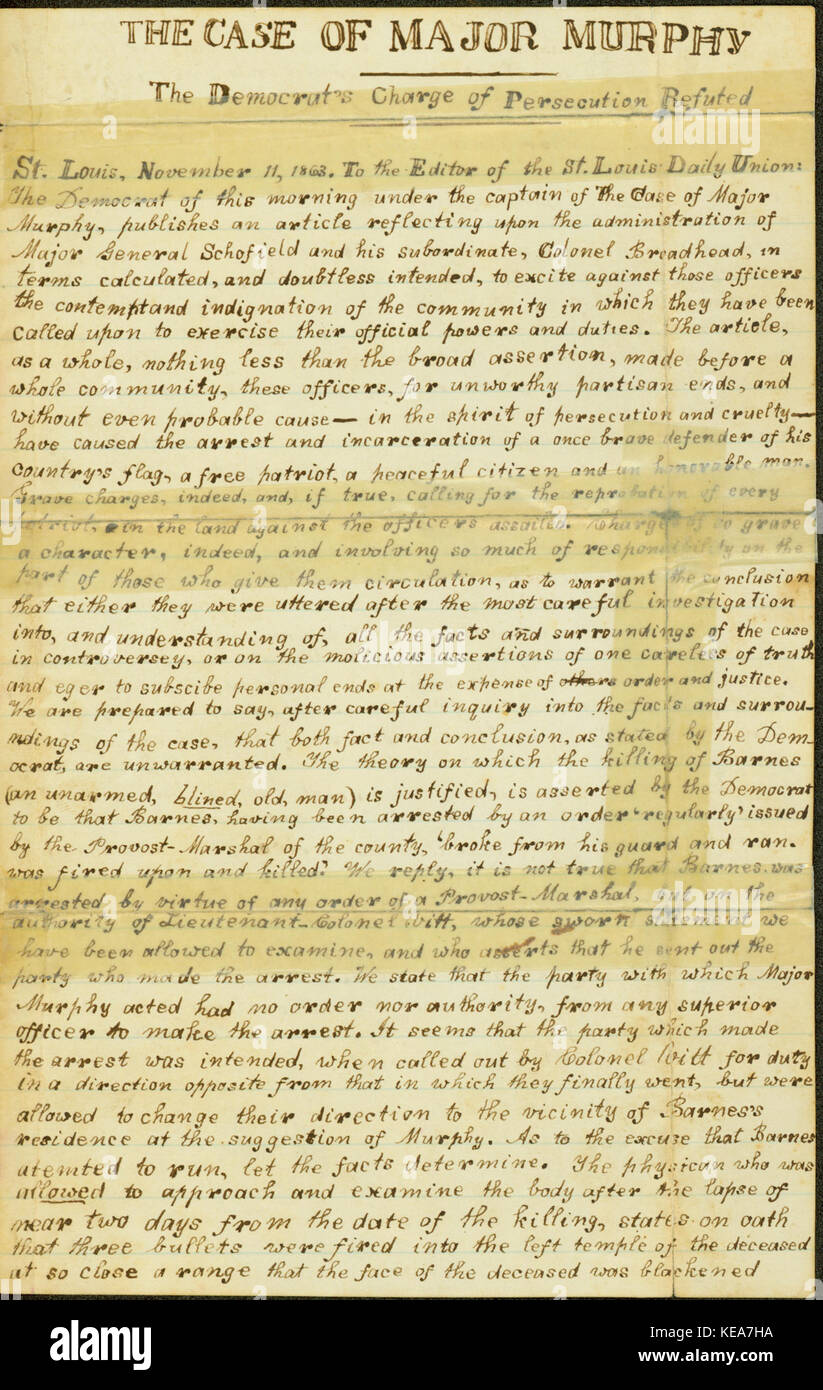 THE CASE OF MAJOR MURPHY
The Democrat's Charge of Persecution Refuted
St. Louis, November 11, 1863. To the Editor of the St. Louis Daily Union:
The Democrat of this morning under the captain of The Case of Major
Murphy, publishes an article reflecting upon the administration of
Major General Schofield and his subordinate, Colonel Broadhead, in
terms calculated, and doubtless intended, to excite against those officers
the contemptand indignation of the community in which they have been
called upon to exercise their official powers and duties. The article,
as a whole, nothing less than the broad assertion, made before a
whole community, these officers, for unworthy partisan ends, and
without even probable cause — in the spirit of persecution and cruelty —
have caused the arrest and incarceration of a once brave defender of his
country's flag, a free patriot, a peaceful citizen and an honorable man.
Grave charges, indeed, and, if true, calling for the reprobation of every
patriot, in the land against the officers assailed. Charges of so grave
a character, indeed, and involving so much of responsibility on the
part of those who give them circulation, as to warrant the conclusion
that either they were uttered after the most careful investigation
into, and understanding of, all the facts and surroundings of the case
in controversey, or on the molicious assertions of one careless of truth
and eger to subscibe personal ends at the expense of others order and justice.
We are prepared to say, after careful inquiry into the facts and surrou-
ndings of the case, that both fact and conclusion, as stated by the Dem-
ocrat, are unwarranted. The theory on which the killing of Barnes
(an unarmed, blined, old, man) is justified, is asserted by the Democrat
to be that Barnes, having been arrested by an order 'regularly' issued
by the Provost-Marshal of the county, 'broke from his guard and ran.
was fired upon and killed.' We reply, it is not true that Barnes was
arrested by virtue of any order of a Provost-Marshal, but on the
authority of Lieutenant-Colonel Witt, whose sworn statement we
have been allowed to examine, and who asserts that he sent out the
party who made the arrest. We state that the party with which Major
Murphy acted had no order nor authority, from any superior
officer to make the arrest. It seems that the party which made
the arrest was intended, when called out by Colonel Witt for duty
in a direction opposite from that in which they finally went, but were
allowed to change their direction to the vicinity of Barnes's
residence at the suggestion of Murphy. As to the excuse that Barnes
atemted to run, let the facts determine. The physican who was
allowed to approach and examine the body after the lapse of
near two days from the date of the killing, states on oath
that three bullets were fired into the left temple of the deceased
at so close a range that the face of the deceased was blackened
alamy
Image ID: KEA7HA
www.alamy.com